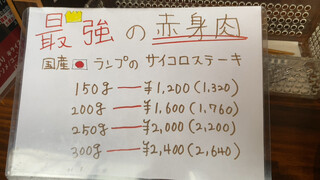 最強の赤身肉
国産 ランプのサイコロステーキ
150g ― ¥1,200 (1,320)
200g ― ¥1,600 (1,760)
250g ― ¥2,000 (2,200)
300g ― ¥2,400 (2,640)